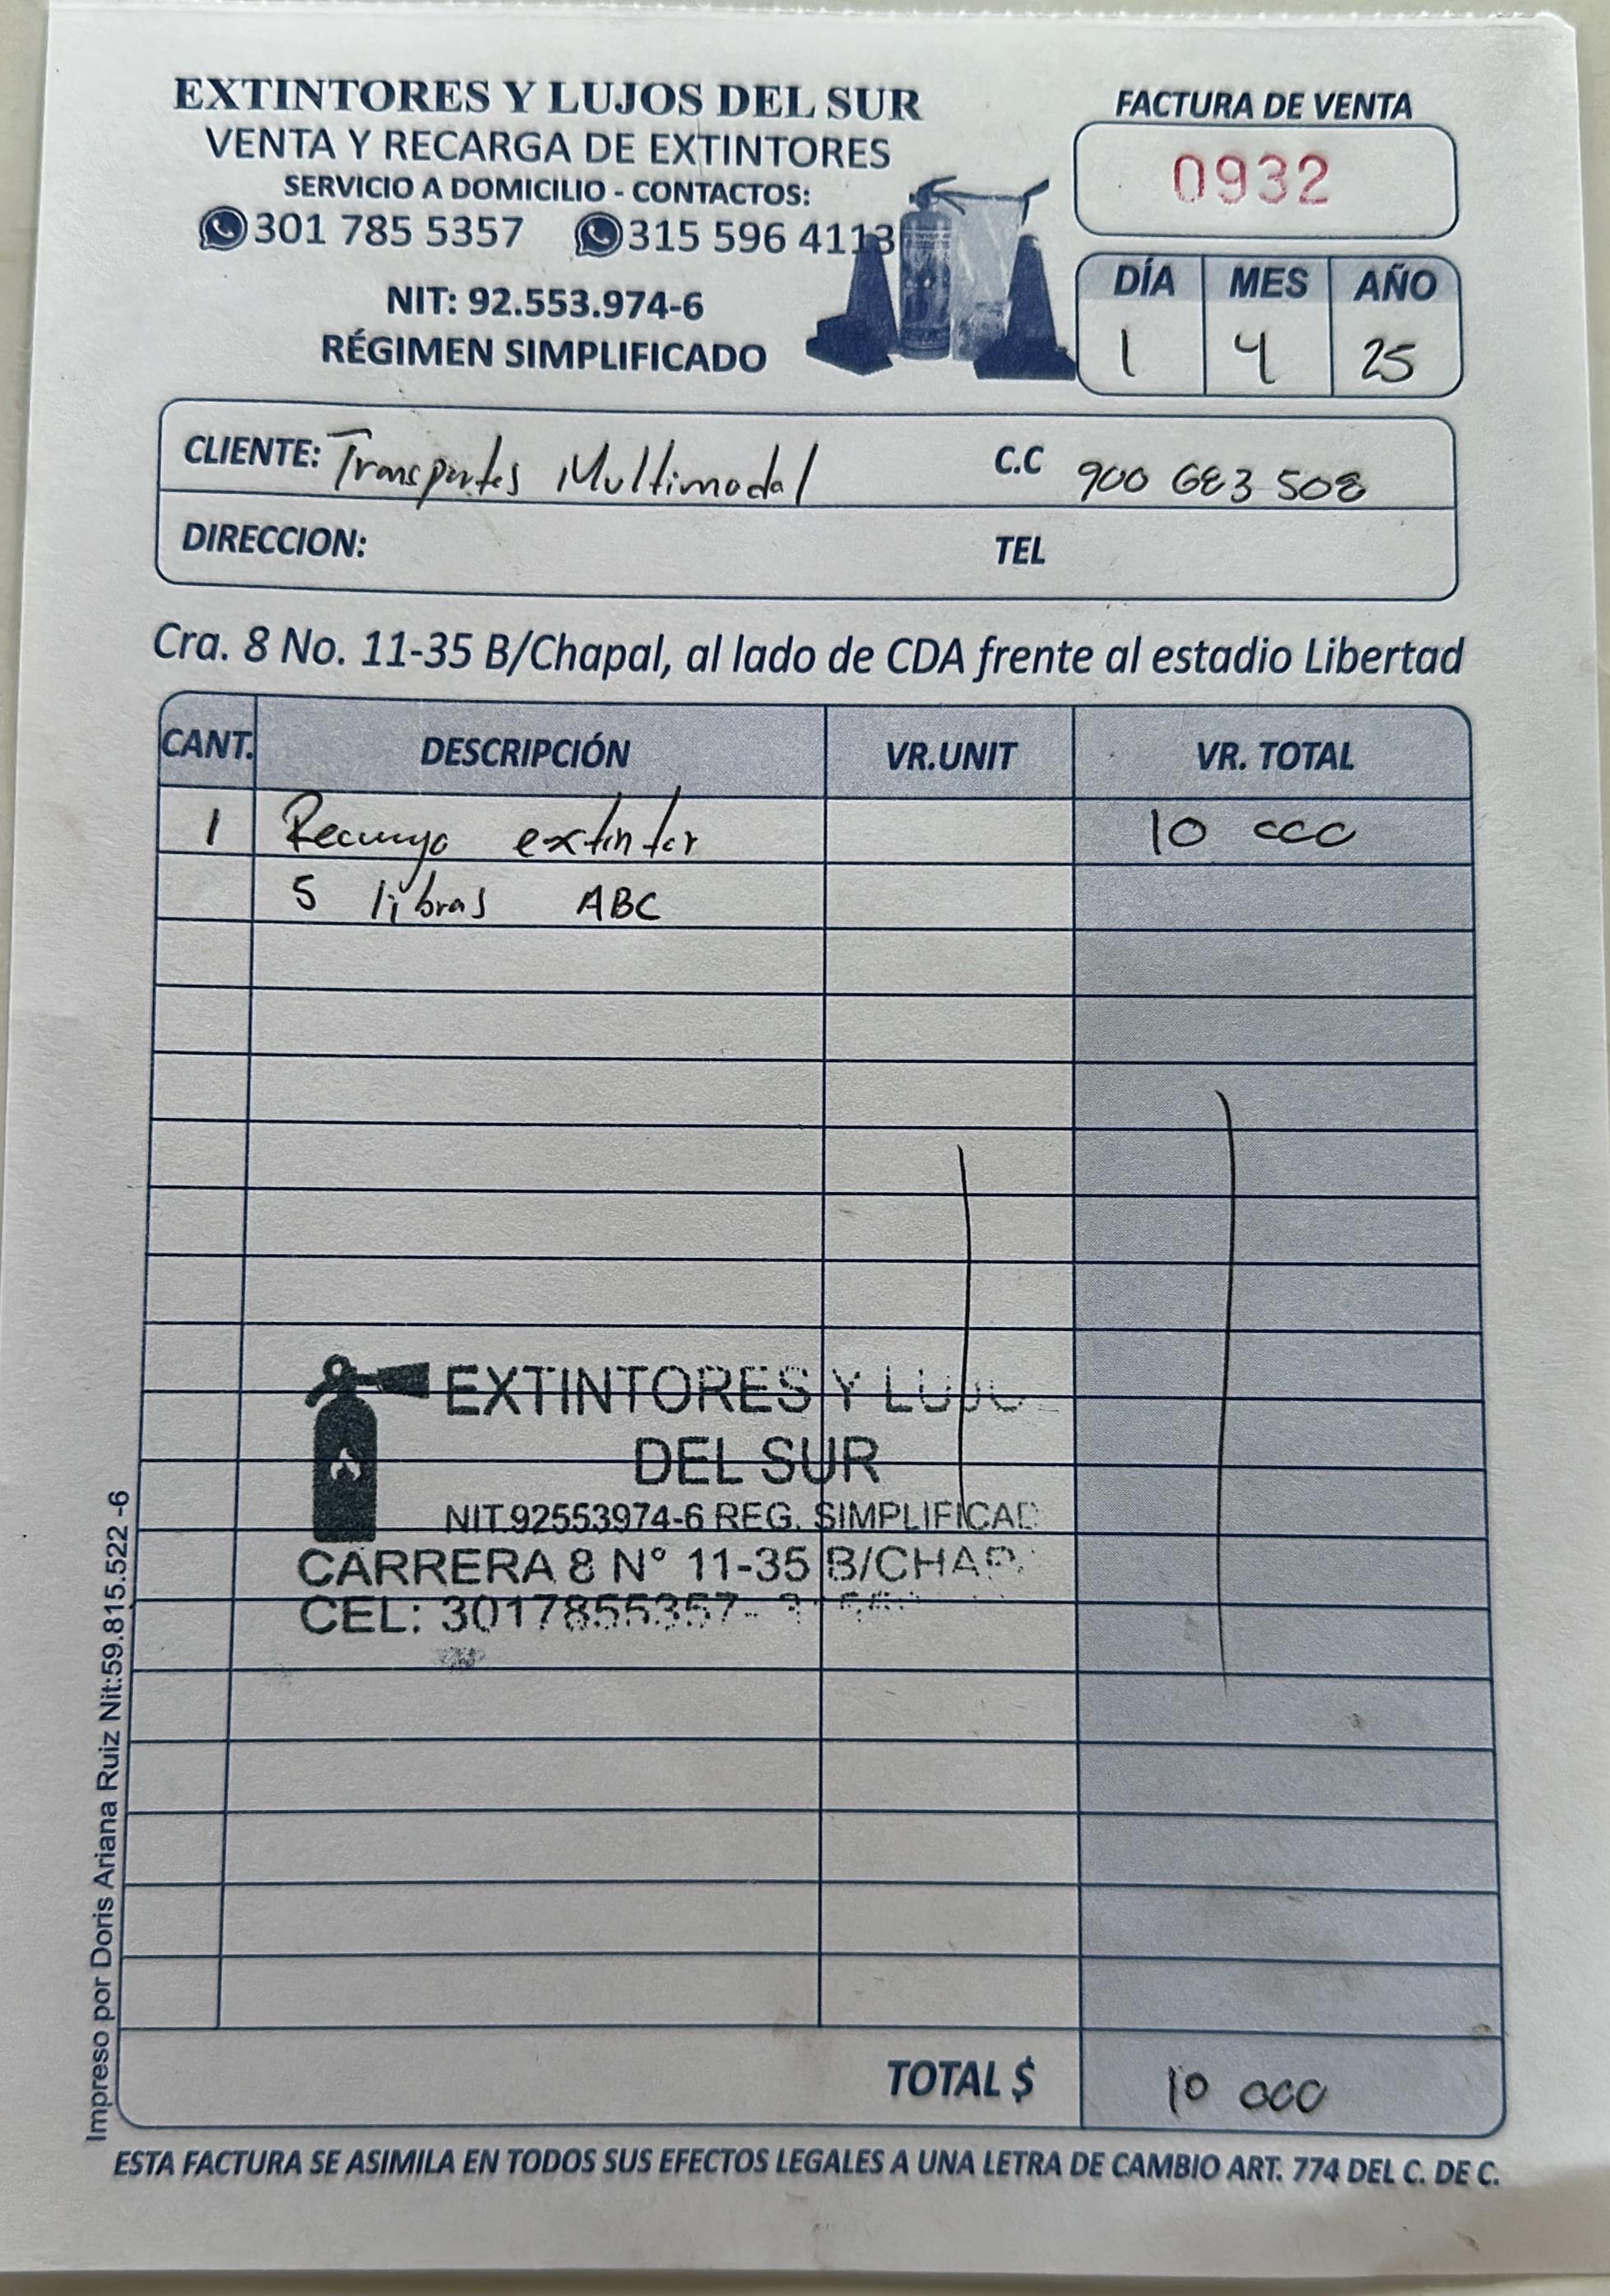 EXTINTORES Y LUJOS DEL SUR
VENTA Y RECARGA DE EXTINTORES
SERVICIO A DOMICILIO - CONTACTOS:
301 785 5357 315 596 4113
NIT: 92.553.974-6
RÉGIMEN SIMPLIFICADO
FACTURA DE VENTA
0932
DÍA MES AÑO
1 4 25
CLIENTE: Transportes Multimodal C.C 900 683 508
DIRECCION: TEL
Cra. 8 No. 11-35 B/Chapal, al lado de CDA frente al estadio Libertad
CANT. DESCRIPCIÓN VR.UNIT VR. TOTAL
1 Recarga extintor 10 000
5 libras ABC
EXTINTORES Y LUJO
DEL SUR
NIT.92553974-6 REG. SIMPLIFICAD
CARRERA 8 N° 11-35 B/CHAP
CEL: 3017855357-
TOTAL $ 10 000
ESTA FACTURA SE ASIMILA EN TODOS SUS EFECTOS LEGALES A UNA LETRA DE CAMBIO ART. 774 DEL C. DE C.
Impreso por Doris Ariana Ruiz Nit:59.815.522 -6